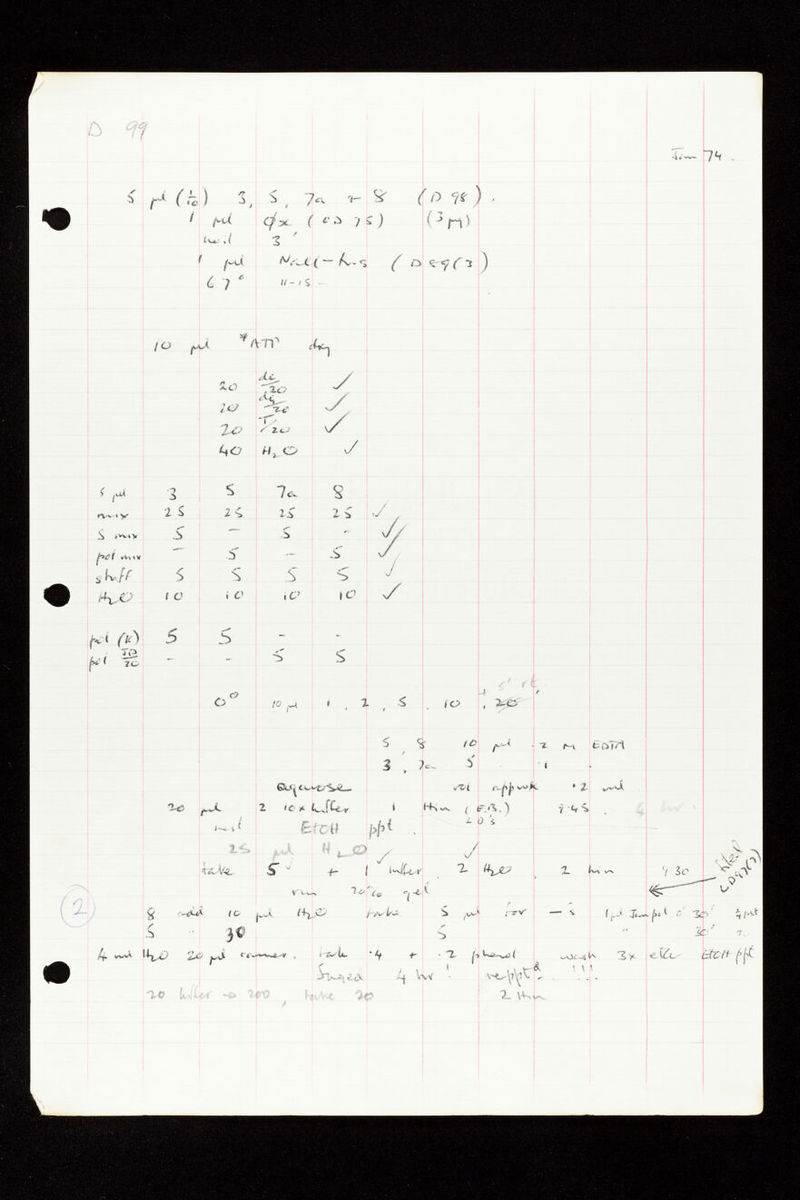 D 99
Jan 74.
5 μl (1/10) 3, 5, 7a + 8 (D 98).
1 μl φx (OD 75) (3 μg)
3'
1 μl (D 89(3)
67° 11-15 -
10 μl *ATP dry
20 dc/20 ✓
20 dg/20 ✓
20 T/20 ✓
40 H2O ✓
5 μl 3 5 7a 8
mix 25 25 25 25 ✓
S mix 5 - 5 - ✓
pol mix - 5 - 5 ✓
stuff 5 5 5 5 ✓
H2O 10 10 10 10 ✓
pol (K) 5 5 - -
pol JD/20 - - 5 5
0° 10 μl 1, 2, 5, 10, 20'
5, 8 10 μl ·2 M EDTA
3, 7a 5 ·1
agarose vol approx ·2 ml
20 μl 2 10x buffer 1 Hin (E.B.) 9.45. 4 hr.
EtOH ppt.
25 μl H2O ✓ ✓
take 5 + 1 buffer. 2 H2O. 2 hin
run 20% gel
2 8 add 10 μl H2O take 5 μl for -'s 1 μl 0° 30'
5 " 30 5 " 30'
4 ml H2O 20 μl carrier. take ·4 + ·2 phenol wash 3x eth EtOH ppt
4 hr! reppt^d. !!!
20 buffer → 200, take 20 2 Hin